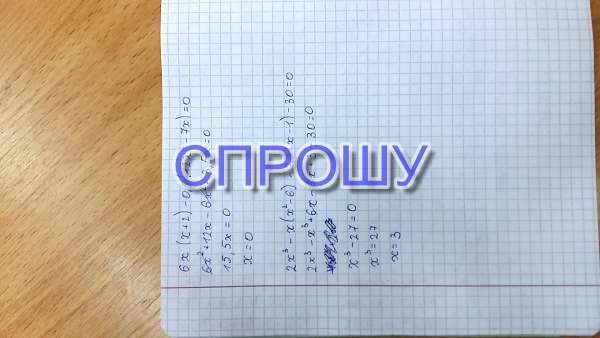 6x(x+2)-0, -7x)=0
6x²+12x-6x² =0
15,5x=0
x=0
2x³-x(x²-6) x-1)-30=0
2x³-x³+6x- 30=0
x³-27=0
x³=27
x=3
СПРОШУ